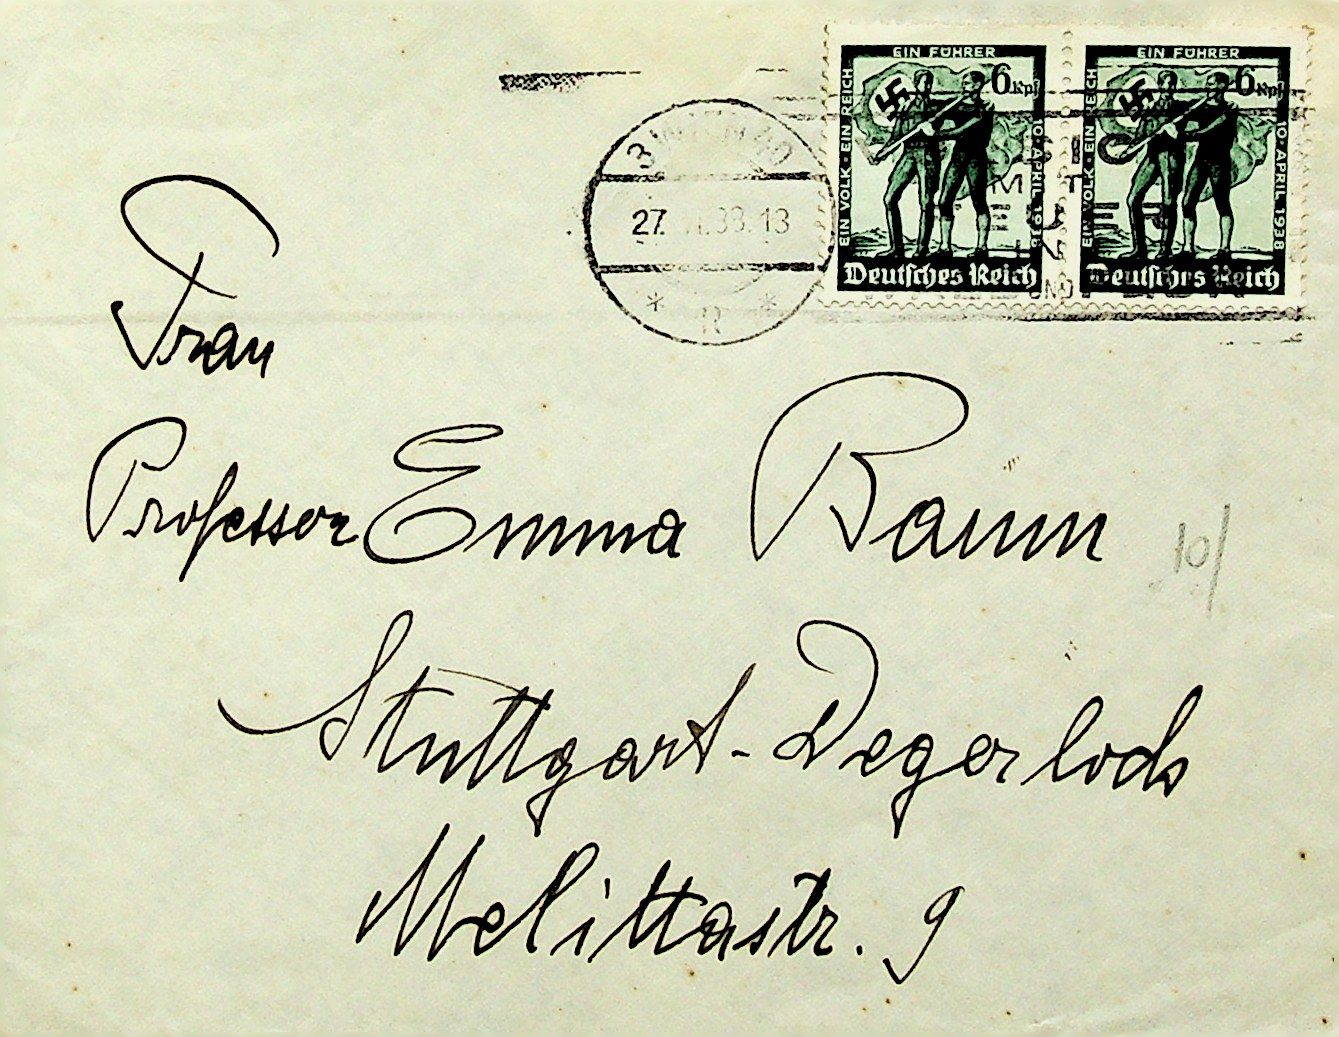 EIN FÜHRER
EIN VOLK · EIN REICH
6 Rpf
10 · APRIL 1938
Deutsches Reich
EIN FÜHRER
EIN VOLK · EIN REICH
6 Rpf
10 · APRIL 1938
Deutsches Reich
27. 38.13
* n *
Frau
Professor Emma Baum
Stuttgart-Degerloch
Melittastr. 9
10/